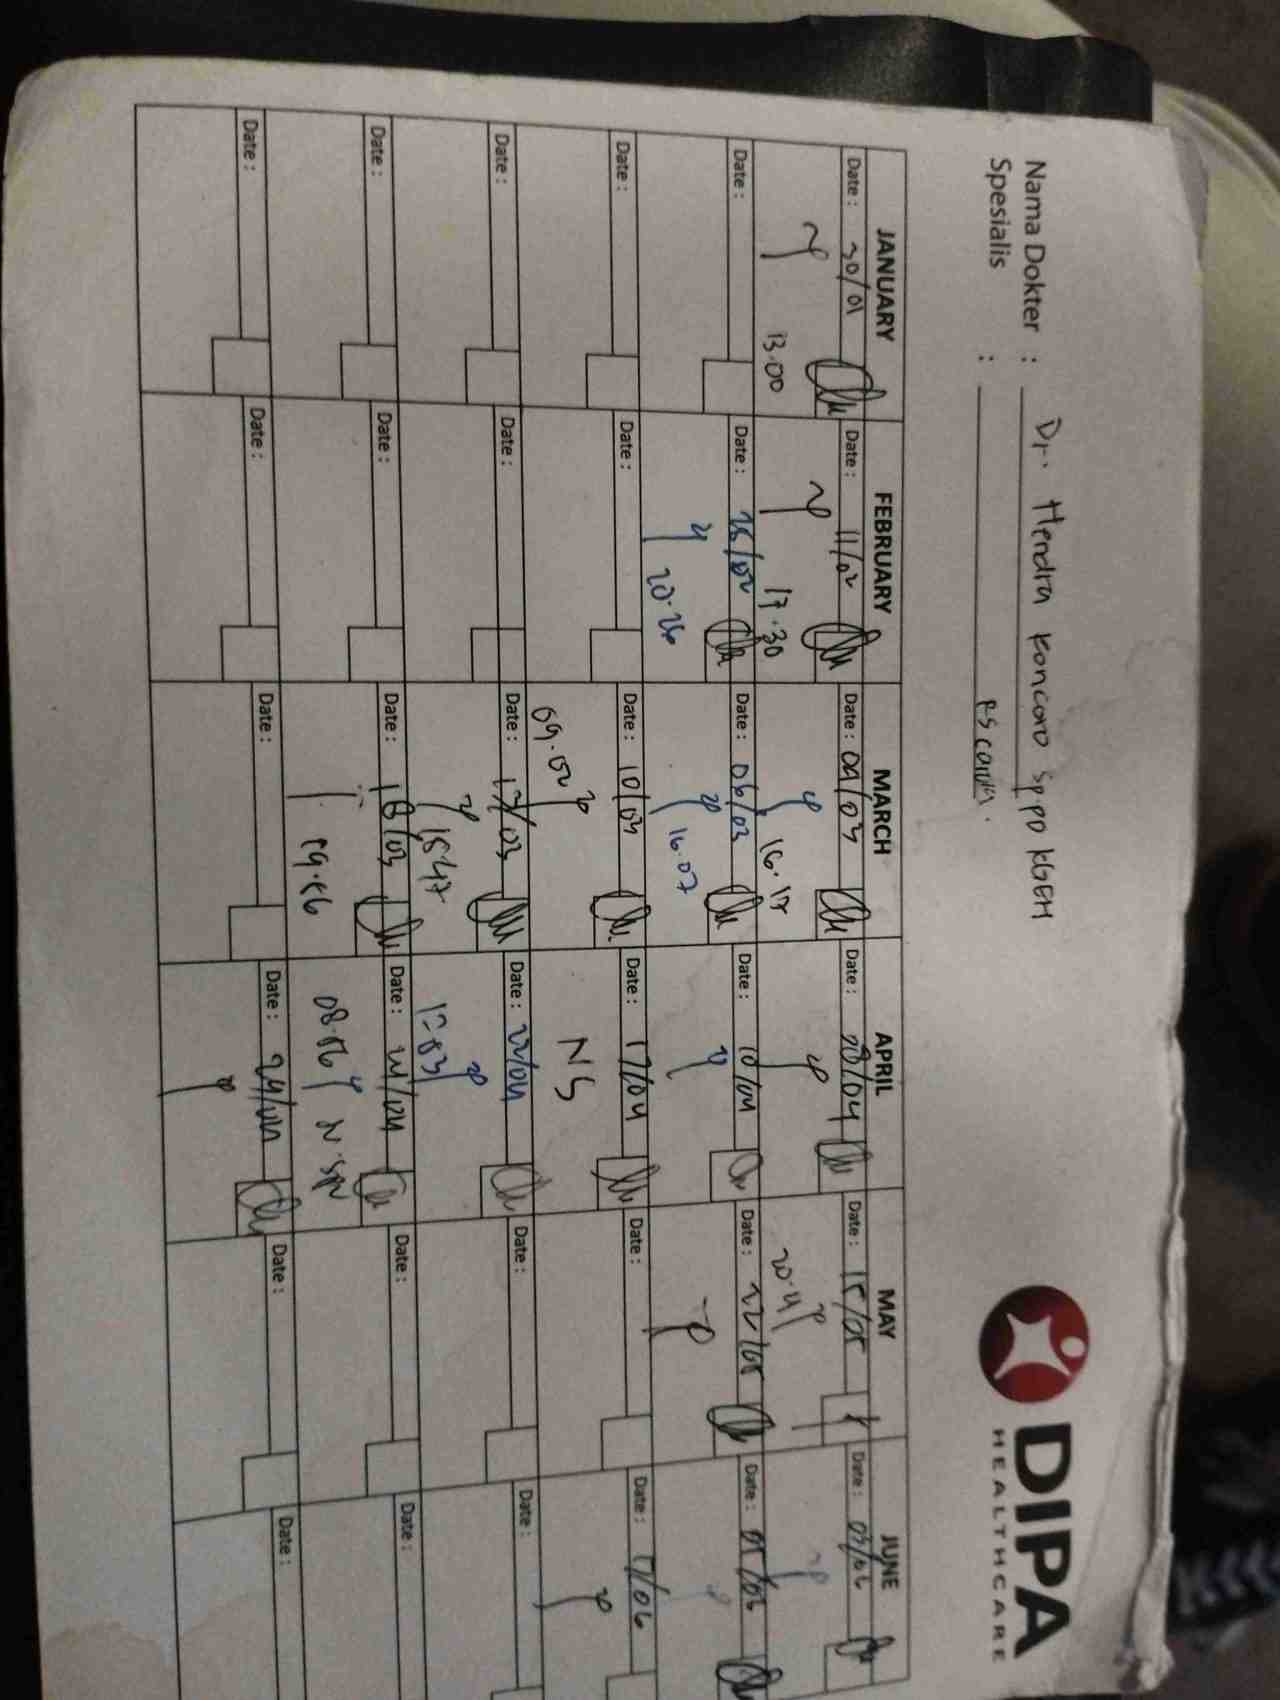 DIPA
HEALTHCARE
Nama Dokter : Dr. Hendra Koncoro Sp.PD KGEH
Spesialis :
JANUARY FEBRUARY MARCH APRIL MAY JUNE
Date : 30/01 Date : 11/02 Date : 04/03 Date : 08/04 Date : 15/05 Date : 03/06
13.00 17.30 16.17 20.41
Date : Date : 25/02 Date : 06/03 Date : 10/04 Date : 22/05 Date : 05/06
20.26 16.07
Date : Date : Date : 10/03 Date : 17/04 Date : Date : 17/06
09.02 NS
Date : Date : Date : 17/03 Date : 22/04 Date : Date :
15.47
Date : Date : Date : 18/03 Date : Date : Date :
08.06
Date : Date : Date : Date : 24/04 Date : Date :